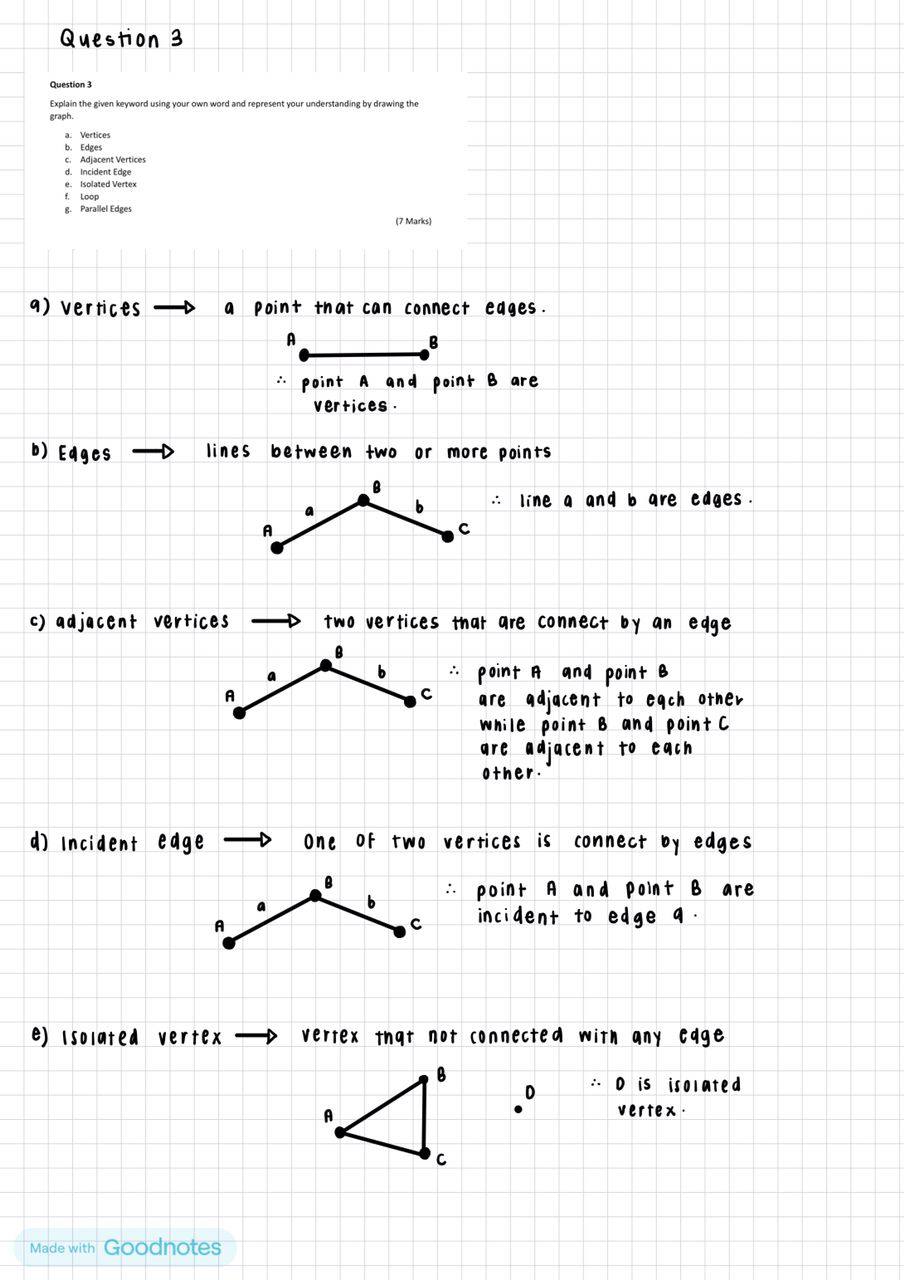 Question 3
Question 3
Explain the given keyword using your own word and represent your understanding by drawing the
graph.
a. Vertices
b. Edges
c. Adjacent Vertices
d. Incident Edge
e. Isolated Vertex
f. Loop
g. Parallel Edges
(7 Marks)
a) Vertices → a point that can connect edges.
A B
∴ point A and point B are
vertices.
b) Edges → lines between two or more points
B
a b ∴ line a and b are edges.
A C
c) adjacent vertices → two vertices that are connect by an edge
B
a b ∴ point A and point B
A C are adjacent to each other
while point B and point C
are adjacent to each
other.
d) Incident edge → One of two vertices is connect by edges
B ∴ point A and point B are
a b incident to edge a.
A C
e) Isolated vertex → vertex that not connected with any edge
B ∴ D is isolated
D vertex.
A
C
Made with Goodnotes